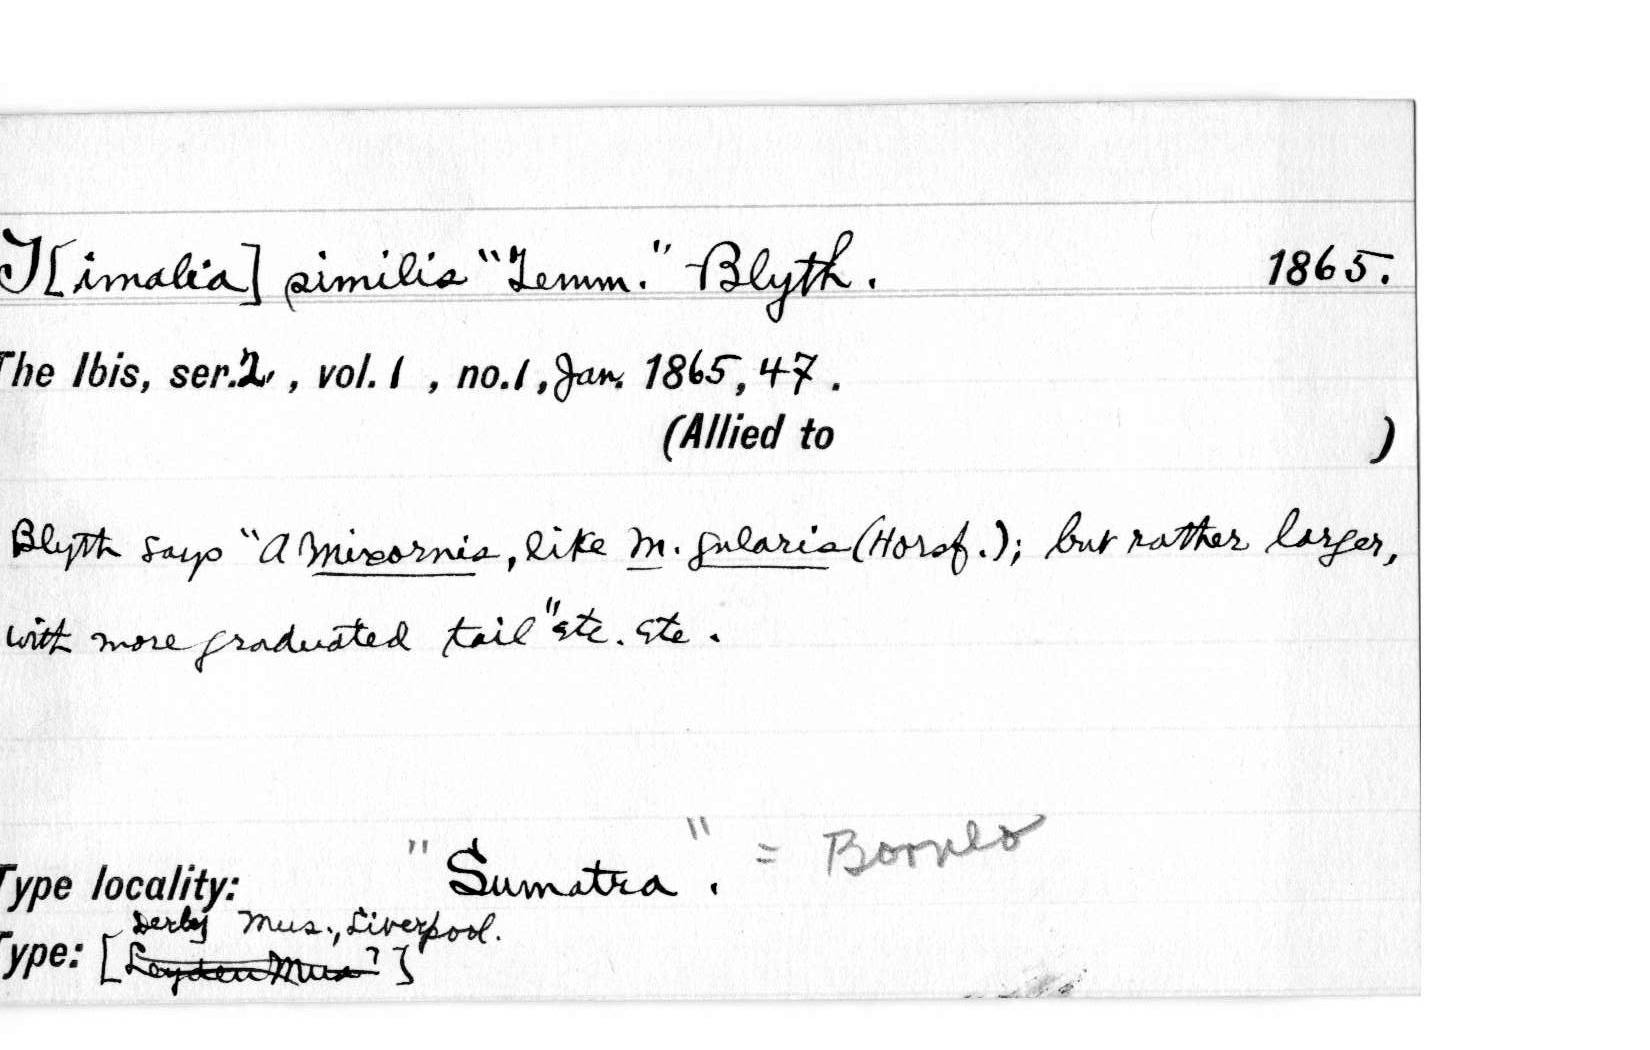 T[imalia] similis "Temm." Blyth. 1865.
The Ibis, ser. 2, , vol. 1 , no. 1, Jan. 1865, 47 .
(Allied to )
Blyth says "A Mixornis, like M. gularis (Horsf.); but rather larger,
with more graduated tail" etc. etc .
Type locality: "Sumatra ." = Borneo
Derby Mus., Liverpool.
Type: [Leyden Mus ?]